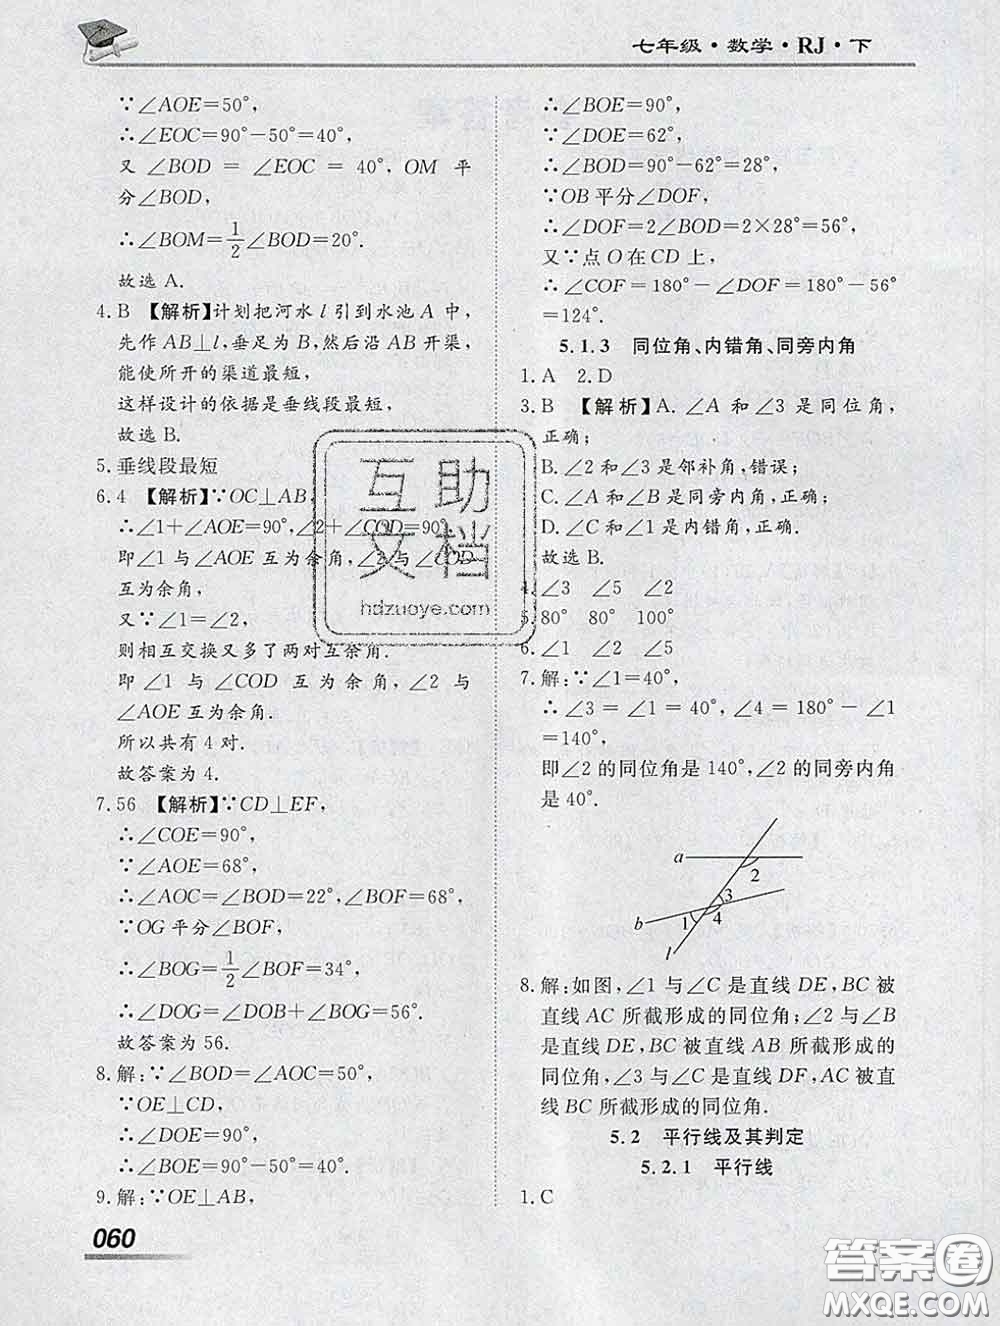 七年级·数学·RJ·下
∵∠AOE=50°,
∴∠EOC=90°-50°=40°,
又∠BOD = ∠EOC = 40°,OM 平
分∠BOD,
∴∠BOM=1/2∠BOD=20°.
故选 A.
4.B 【解析】计划把河水 l 引到水池 A 中,
先作 AB⊥l,垂足为 B,然后沿 AB 开渠,
能使所开的渠道最短,
这样设计的依据是垂线段最短,
故选 B.
5.垂线段最短
6.4 【解析】∵OC⊥AB,
∴∠1+∠AOE=90°,∠2+∠COD=90°,
即∠1 与∠AOE 互为余角,∠2 与∠COD
互为余角,
又∵∠1=∠2,
则相互交换又多了两对互余角.
即∠1 与∠COD 互为余角,∠2 与
∠AOE 互为余角.
所以共有 4 对.
故答案为 4.
7.56 【解析】∵CD⊥EF,
∴∠COE=90°,
∵∠AOE=68°,
∴∠AOC=∠BOD=22°,∠BOF=68°,
∵OG 平分∠BOF,
∴∠BOG=1/2∠BOF=34°,
∴∠DOG=∠DOB+∠BOG=56°.
故答案为 56.
8.解:∵∠BOD=∠AOC=50°,
∵OE⊥CD,
∴∠DOE=90°,
∴∠BOE=90°-50°=40°.
9.解:∵OE⊥AB,
060
∴∠BOE=90°,
∵∠DOE=62°,
∴∠BOD=90°-62°=28°.
∵OB 平分∠DOF,
∴∠DOF=2∠BOD=2×28°=56°,
又∵点 O 在 CD 上,
∴∠COF=180°-∠DOF=180°-56°
=124°.
5.1.3 同位角、内错角、同旁内角
1.A 2.D
3.B 【解析】A.∠A 和∠3 是同位角,
正确;
B.∠2 和∠3 是邻补角,错误;
C.∠A 和∠B 是同旁内角,正确;
D.∠C 和∠1 是内错角,正确.
故选 B.
4.∠3 ∠5 ∠2
5.80° 80° 100°
6.∠1 ∠2 ∠5
7.解:∵∠1=40°,
∴∠3=∠1=40°,∠4=180°-∠1
=140°,
即∠2 的同位角是 140°,∠2 的同旁内角
是 40°.
a
2
3
b
1
4
l
8.解:如图,∠1 与∠C 是直线 DE,BC 被
直线 AC 所截形成的同位角;∠2 与∠B
是直线 DE,BC 被直线 AB 所截形成的
同位角,∠3 与∠C 是直线 DF,AC 被直
线 BC 所截形成的同位角.
5.2 平行线及其判定
5.2.1 平行线
1.C
互助
文档
hdzuoye.com
答案圈
MXQE.COM